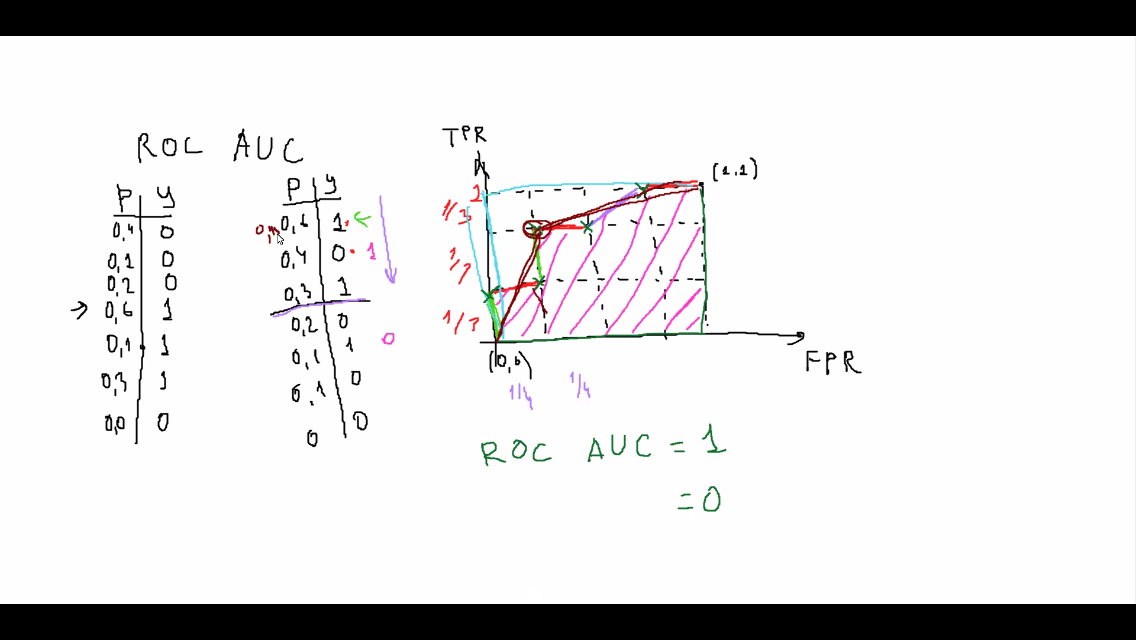 ROC AUC
P y
0,4 0
0,1 0
0,2 0
0,6 1
0,1 1
0,3 1
0,0 0
P y
0,6 1
0,4 0 1
0,3 1
0,2 0
0,1 1 0
0,1 0
0 0
TPR
(1,1)
1
1/3
1/3
1/3
(0,0)
1/4 1/4
FPR
ROC AUC = 1
= 0